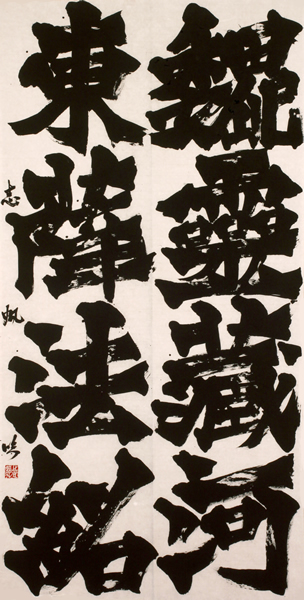 魏靈藏河
東薛法紹
志